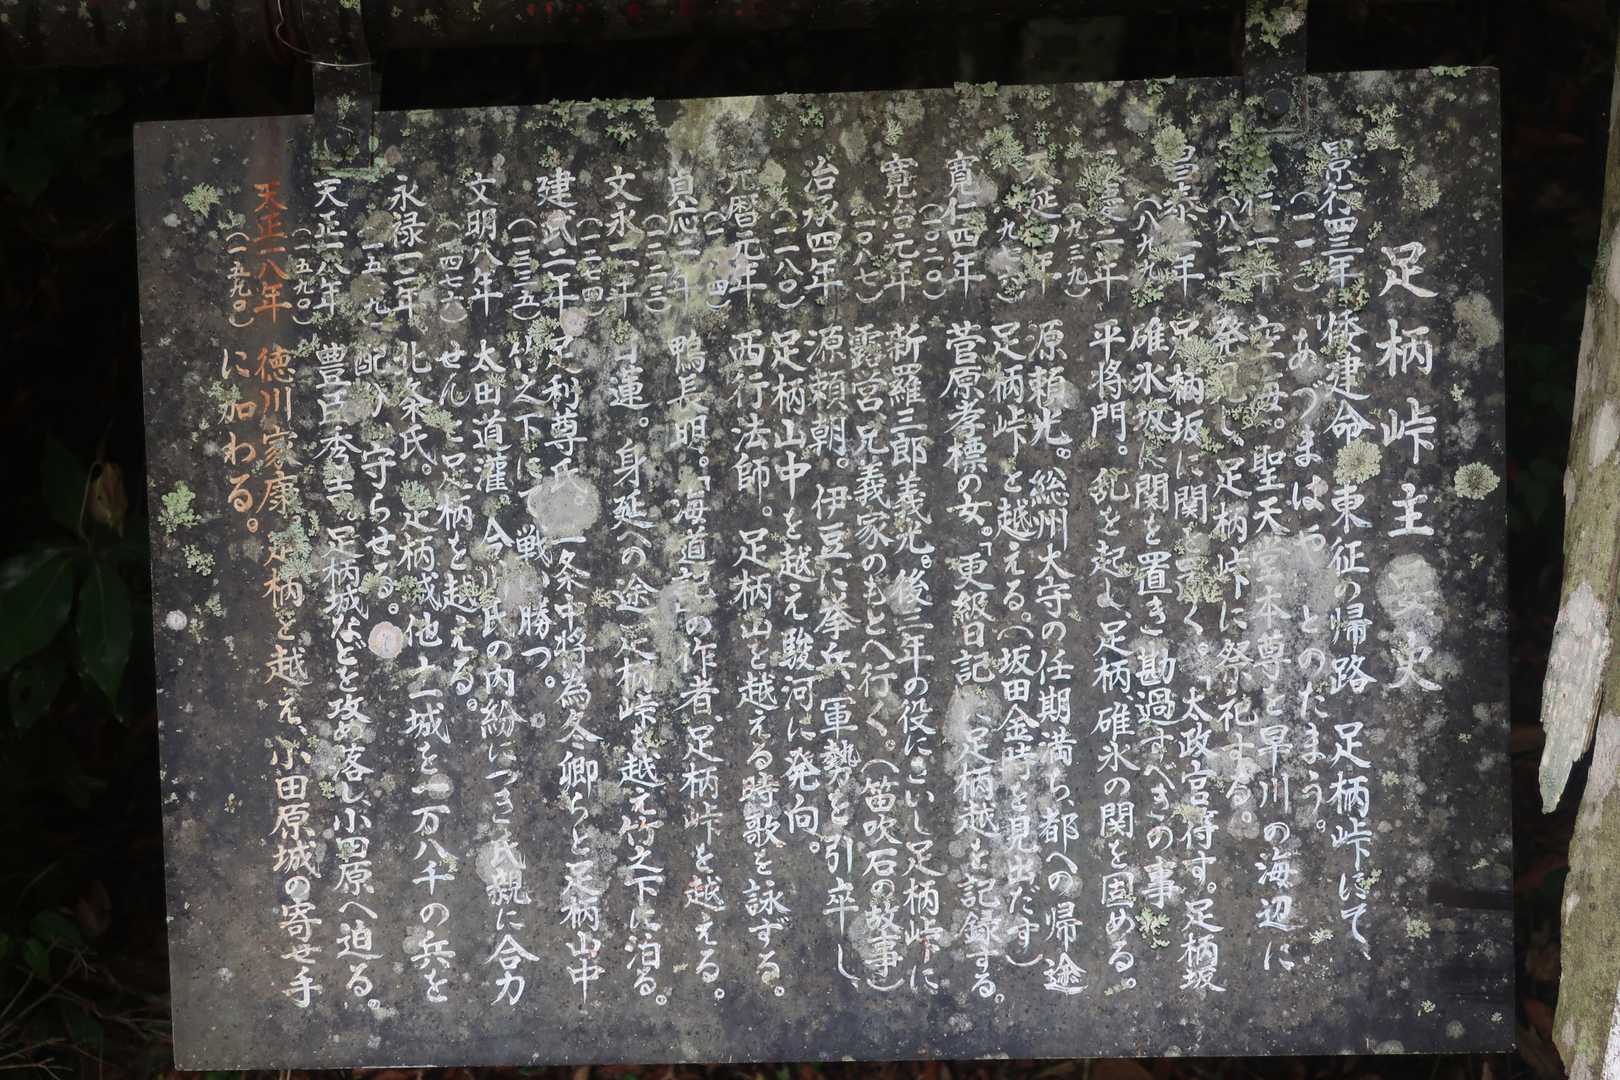 足柄峠主要史
景行四三年 倭建命、東征の帰路 足柄峠にて、
(一一三) あづまはや、とのたまう。
弘仁二年 空海。聖天宮本尊を早川の海辺に
(八一一) 発見し、足柄峠に祭祀する。
昌泰二年 足柄坂に関を置く。「太政官符す。足柄坂
(八九九) 碓氷坂に関を置き勘過すべきの事
天慶二年 平将門。乱を起し、足柄、碓氷の関を固める。
(九三九)
天延四年 源頼光。総州大守の任期満ち、都への帰途
足柄峠を越える。(坂田金時を見出だす)
寛仁四年 菅原孝標の女。「更級日記」に足柄越を記録する。
(一〇二〇)
寛治元年 新羅三郎義光。後三年の役にさいし足柄峠に
(一〇八七) 露営、兄義家のもとへ行く。(笛吹石の故事)
治承四年 源頼朝。伊豆に挙兵、軍勢を引卒し、
(一一八〇) 足柄山中を越え駿河に発向。
元暦元年 西行法師。足柄山を越える時歌を詠ずる。
貞応二年 鴨長明。「海道記」の作者、足柄峠を越える。
(一二二三)
文永一一年 日蓮。身延への途、足柄峠を越え竹之下に泊る。
(一二七四)
建武二年 足利尊氏。一条中将為冬卿らと足柄山中
(一三三五) 竹之下にて戦い勝つ。
文明八年 太田道灌。今川氏の内紛につき氏親に合力
(一四七六) せんと足柄を越える。
永禄一二年 北条氏。足柄城他十一城を一万八千の兵を
配分、守らせる。
天正一八年 豊臣秀吉。足柄城などを攻め落し小田原へ迫る。
(一五九〇)
天正一八年 徳川家康。足柄を越え、小田原城の寄せ手
(一五九〇) に加わる。